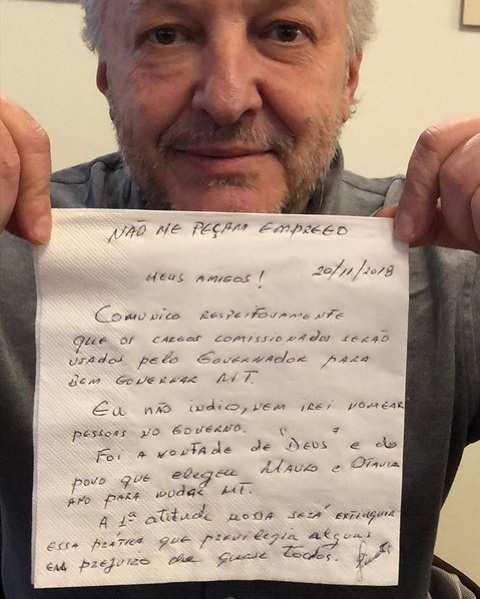 NÃO ME PEÇAM EMPREGO
MEUS AMIGOS! 20/11/2018
COMUNICO RESPEITOSAMENTE
QUE OS CARGOS COMISSIONADOS SERÃO
USADOS PELO GOVERNADOR PARA
BEM GOVERNAR MT.
EU NÃO INDICO, NEM IREI NOMEAR
PESSOAS NO GOVERNO. " "
FOI A VONTADE DE DEUS E DO
POVO QUE ELEGEU MAURO E OTAVIA
ANO PARA MUDAR MT.
A 1ª ATITUDE NOSSA SERÁ EXTINGUIR
ESSA PRÁTICA QUE PREVILEGIA ALGUNS
EM PREJUIZO DE QUASE TODOS.